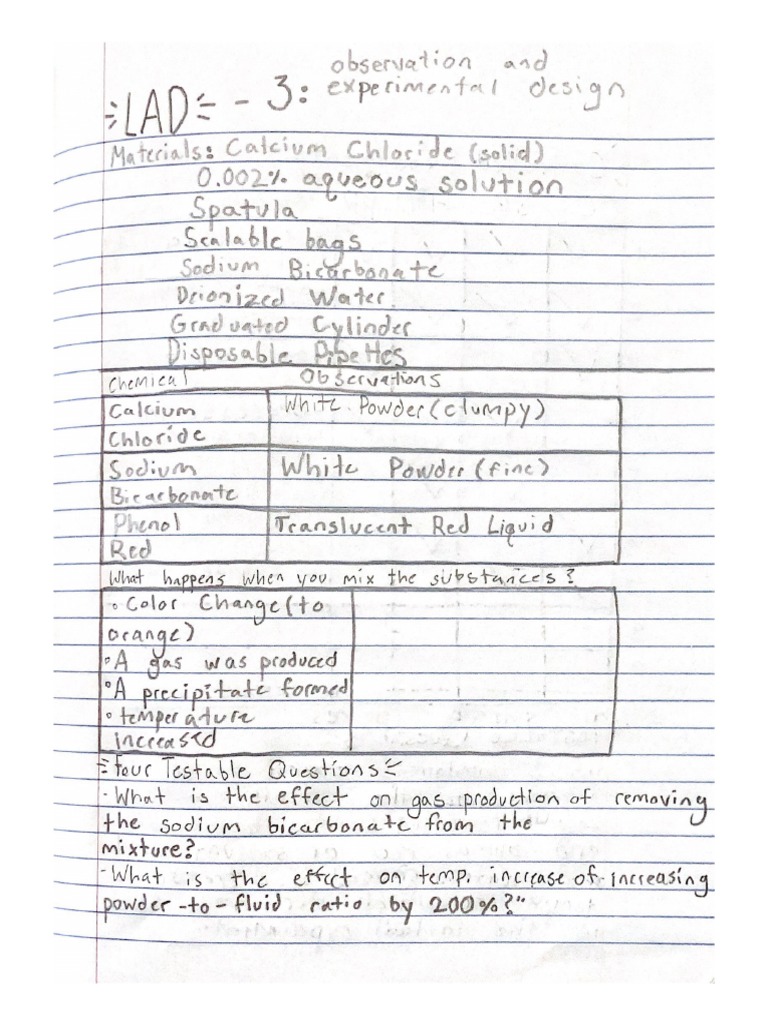 observation and
=LAD= - 3: experimental design
Materials: Calcium Chloride (solid)
0.002% aqueous solution
Spatula
Scalable bags
Sodium Bicarbonate
Deionized Water
Graduated Cylinder
Disposable Pipettes
Chemical Observations
Calcium White Powder (clumpy)
Chloride
Sodium White Powder (fine)
Bicarbonate
Phenol Translucent Red Liquid
Red
What happens when you mix the substances?
• Color Change (to
orange)
• A gas was produced
• A precipitate formed
• temperature
increased
Four Testable Questions
- What is the effect on gas production of removing
the sodium bicarbonate from the
mixture?
- What is the effect on temp. increase of increasing
powder-to-fluid ratio by 200%?"